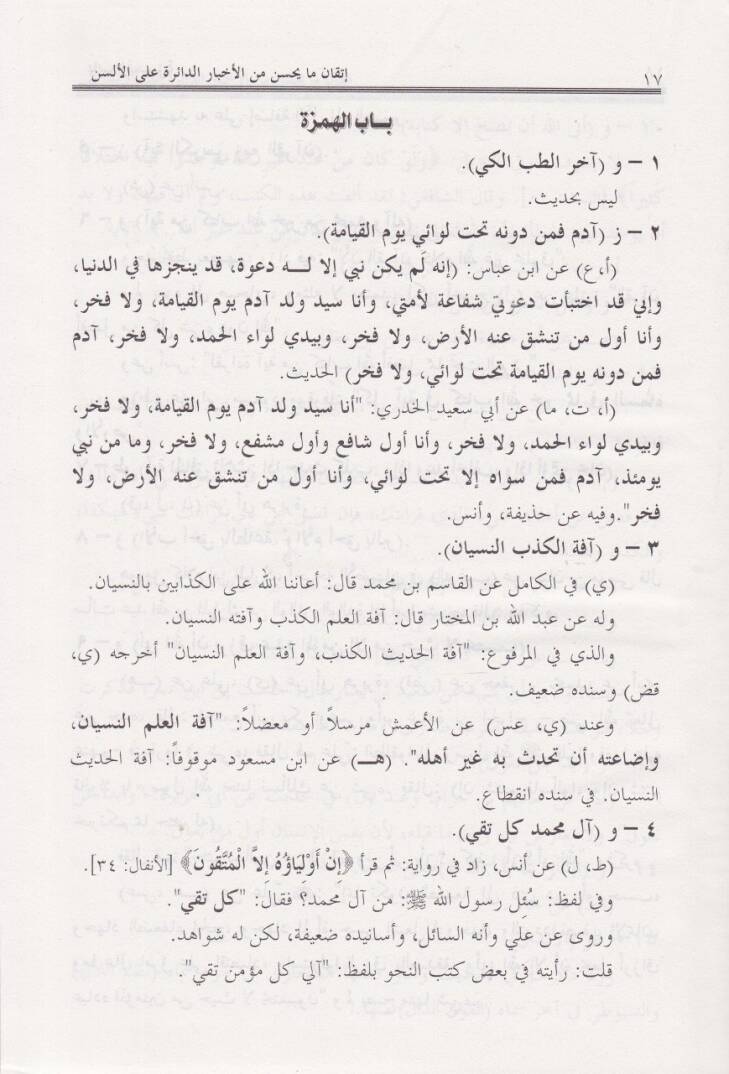 ١٧ إتقان ما يحسن من الأخبار الدائرة على الألسن
باب الهمزة
١ – و (آخر الطب الكي).
ليس بحديث.
٢ – ز (آدم فمن دونه تحت لوائي يوم القيامة).
(أ، ع) عن ابن عباس: (إنه لَم يكن نبي إلا لـــه دعوة، قد ينجزها في الدنيا،
وإنيْ قد اختبأت دعوتيْ شفاعة لأمتي، وأنا سيد ولد آدم يوم القيامة، ولا فخر،
وأنا أول من تنشق عنه الأرض، ولا فخر، وبيدي لواء الحمد، ولا فخر، آدم
فمن دونه يوم القيامة تحت لوائي، ولا فخر) الحديث.
(أ، ت، ما) عن أبي سعيد الخدري: "أنا سيد ولد آدم يوم القيامة، ولا فخر،
وبيدي لواء الحمد، ولا فخر، وأنا أول شافع وأول مشفع، ولا فخر، وما من نبي
يومئذ، آدم فمن سواه إلا تحت لوائي، وأنا أول من تنشق عنه الأرض، ولا
فخر".وفيه عن حذيفة، وأنس.
٣ – و (آفة الكذب النسيان).
(ي) في الكامل عن القاسم بن محمد قال: أعاننا الله على الكذابين بالنسيان.
وله عن عبد الله بن المختار قال: آفة العلم الكذب وآفته النسيان.
والذي في المرفوع: "آفة الحديث الكذب، وآفة العلم النسيان" أخرجه (ي،
قض) وسنده ضعيف.
وعند (ي، عس) عن الأعمش مرسلاً أو معضلاً: "آفة العلم النسيان،
وإضاعته أن تحدث به غير أهله". (هــ) عن ابن مسعود موقوفاً: آفة الحديث
النسيان. في سنده انقطاع.
٤ – و (آل محمد كل تقي).
(ط، ل) عن أنس، زاد في رواية: ثم قرأ ﴿إِنْ أَوْلِيَاؤُهُ إِلاَّ الْمُتَّقُونَ﴾ [الأنفال: ٣٤].
وفي لفظ: سُئِل رسول الله ﷺ: من آل محمد؟ فقال: "كل تقي".
وروى عن علي وأنه السائل، وأسانيده ضعيفة، لكن له شواهد.
قلت: رأيته في بعض كتب النحو بلفظ: "آلي كل مؤمن تقي".